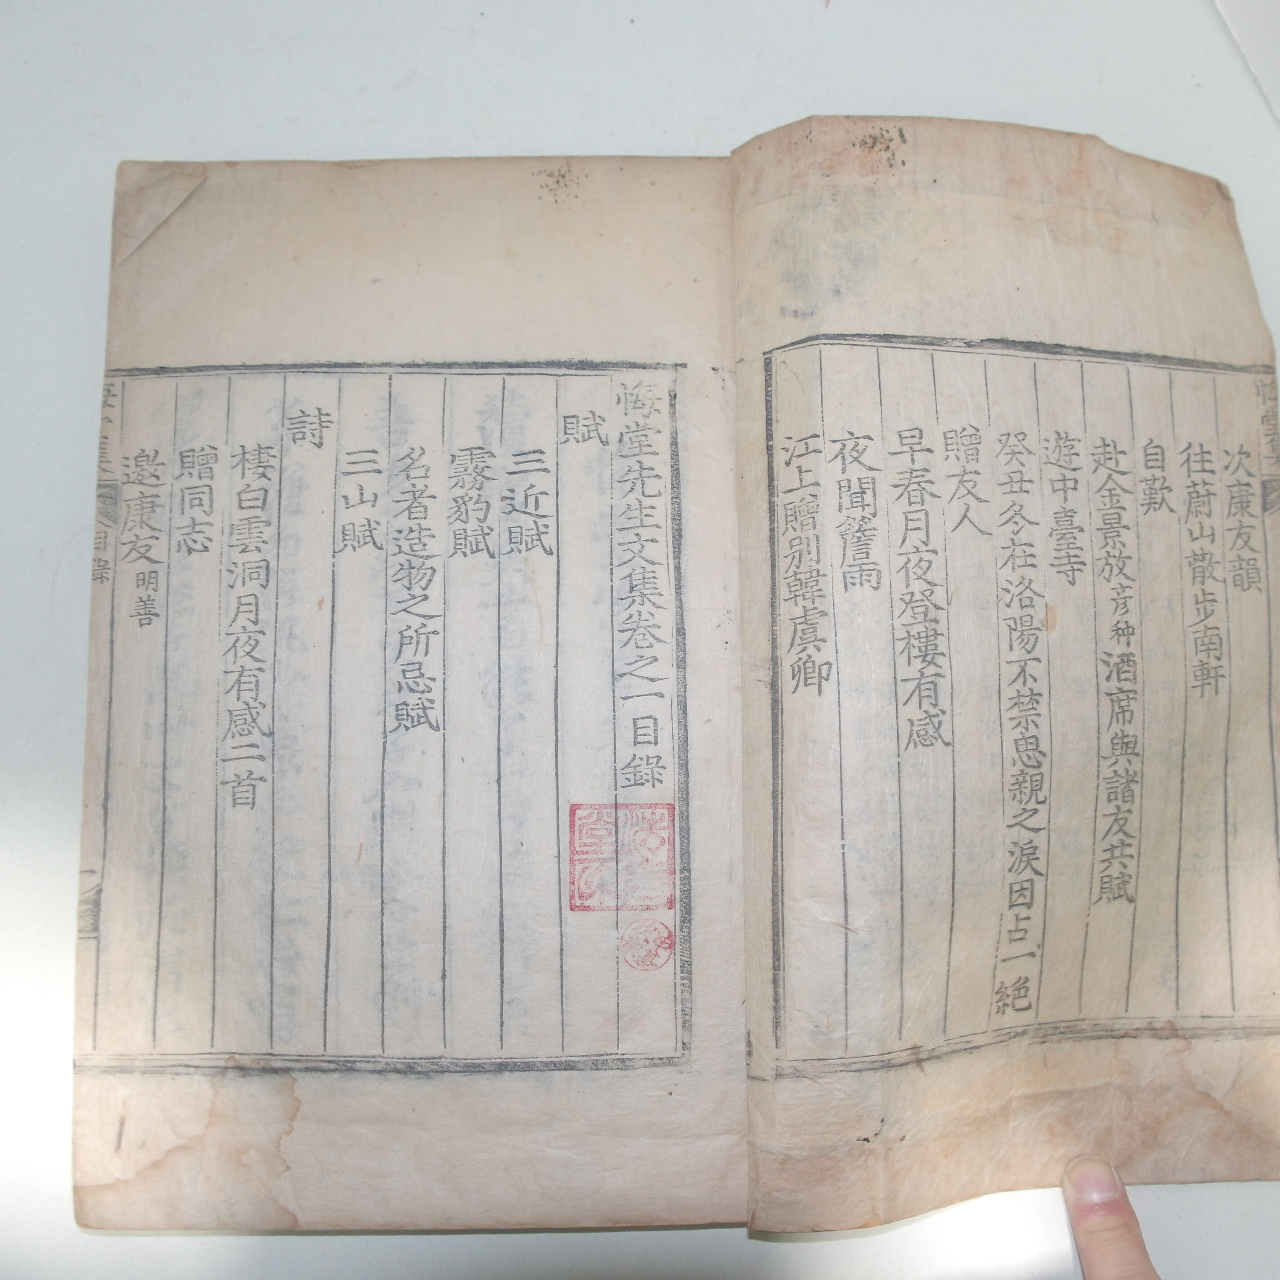 次康友韻
往蔚山散步南軒
自歎
赴金景放彦种酒席與諸友共賦
遊中臺寺
癸丑冬在洛陽不禁思親之淚因占一絶
贈友人
早春月夜登樓有感
夜聞簷雨
江上贈別韓虞卿
悔堂先生文集卷之一目錄
賦
三近賦
霧豹賦
名者造物之所忌賦
三山賦
詩
棲白雲洞月夜有感二首
贈同志
邀康友明善
目錄